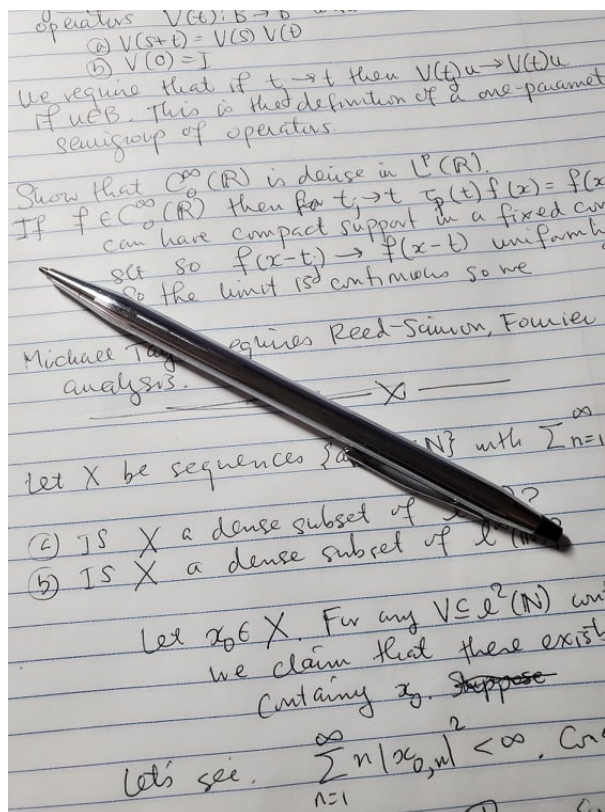 operators V(t): B → B
(a) V(s+t) = V(s) V(t)
(b) V(0) = I
We require that if t_j → t then V(t_j)u → V(t)u
if u∈B. This is the definition of a one-paramet
semigroup of operators.
Show that C_0^∞(ℝ) is dense in L^p(ℝ).
If f ∈ C_0^∞(ℝ) then for t_j → t τ_p(t) f(x) = f(x
can have compact support in a fixed com
set so f(x-t_j) → f(x-t) uniformly
so the limit is continuous so we
Michael Tay equires Reed-Simon, Fourier
analysis.
X
Let X be sequences {a N} with ∑_{n=1}^∞
(a) IS X a dense subset of ?
(b) IS X a dense subset of l
Let x_0 ∈ X. For any V ⊆ l^2(ℕ) con
we claim that there exist
containing x_0. Suppose
Let's see. ∑_{n=1}^∞ n|x_{0,n}|^2 < ∞. Con